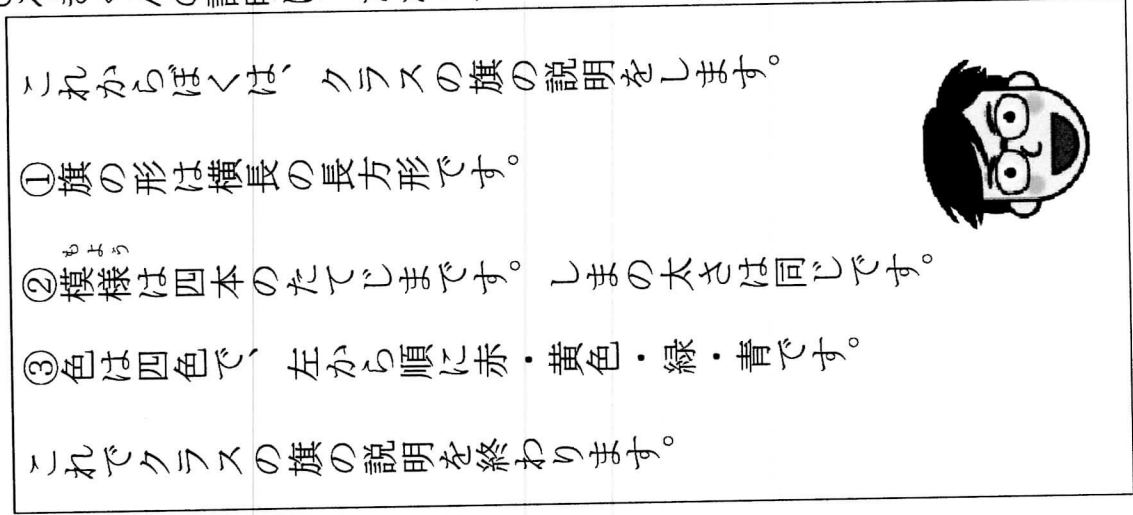 これからぼくは、クラスの旗の説明をします。
①旗の形は横長の長方形です。
もよう
②模様は四本のたてじまです。しまの太さは同じです。
③色は四色で、左から順に赤・黄色・緑・青です。
これでクラスの旗の説明を終わります。